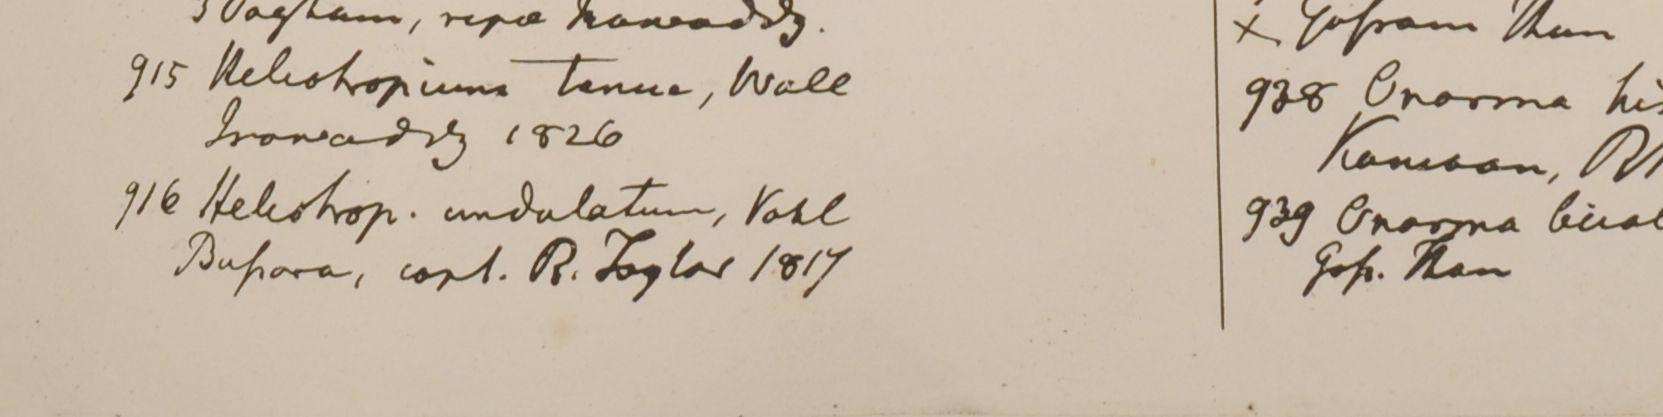 3 Yagham, ripæ Irawaddy.
915 Heliotropium tenue, Wall
Irrawaddy 1826
916 Heliotrop. undulatum, Vahl
Bussora, capt. R. Taylor 1817
× Gossam Than
938 Onosma his
Kamaon, R
939 Onosma bical
Gos. Than